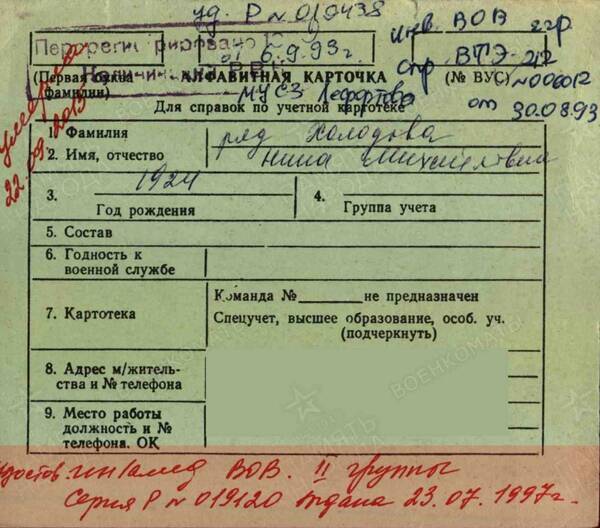 уд. Р № 019438
Перерегистрировано
6.9.93г.
инв. ВОВ 2гр.
спр. ВТЭ-212
№ 006012
от 30.08.93
(Первая буква фамилии)
АЛФАВИТНАЯ КАРТОЧКА
(№ ВУС)
МУСЗ Лефортово
Для справок по учетной картотеке
умерла
22.09.2013
1. Фамилия ряд Холодова
2. Имя, отчество Нина Михайловна
3. 1924
Год рождения
4.
Группа учета
5. Состав
6. Годность к
военной службе
7. Картотека
Команда № не предназначен
Спецучет, высшее образование, особ. уч.
(подчеркнуть)
8. Адрес м/житель-
ства и № телефона
9. Место работы
должность и №
телефона. ОК
Удостов. инвалид ВОВ. II группы
Серия Р № 019120 выдана 23.07.1997г.